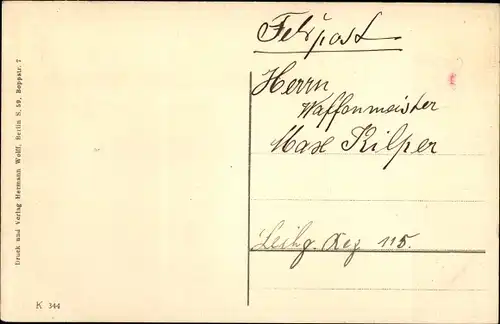 Feldpost
Herrn
Waffenmeister
Max Kilper
Leibg. Reg 115.
Druck und Verlag Hermann Wolff, Berlin S. 59, Boppstr. 7
K 344